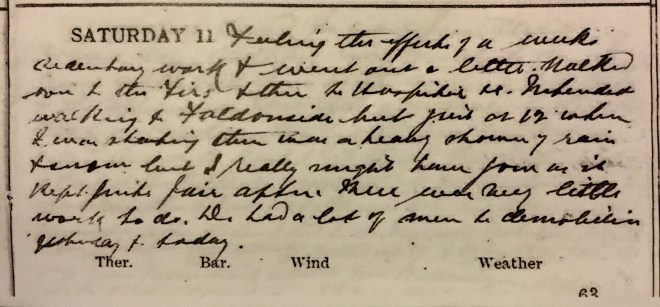 SATURDAY 11 Feeling the effects of a weeks
sedentary work & went out a little. Walked
over to the Firs & then to Hospital &c. Intended
walking to Faldonside but just at 12 when
I was starting there was a heavy shower of rain
& snow but I really might have gone as it
kept quite fair after. There was very little
work to do. We had a lot of men to demobilise
yesterday & today.
Ther. Bar. Wind Weather
63